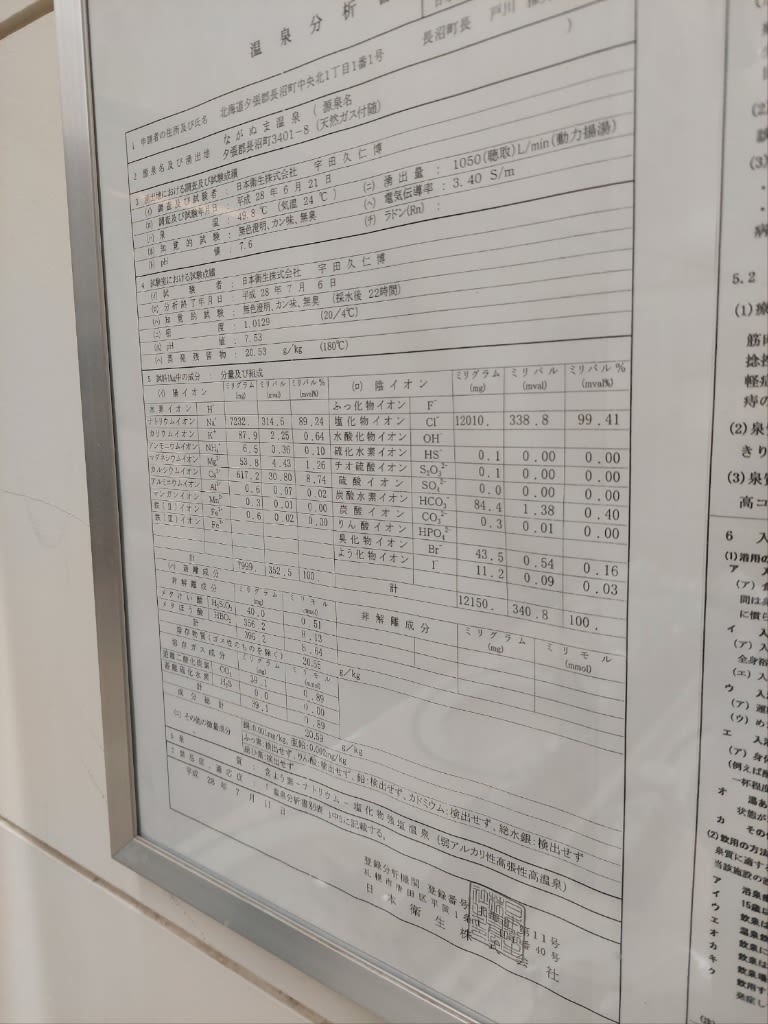 温泉分析
長沼町長 戸川
1 申請者の住所及び氏名 北海道夕張郡長沼町中央北1丁目1番1号
2 源泉名及び湧出地 ながぬま温泉 (源泉名 )
夕張郡長沼町3401-8 (天然ガス付随)
3 湧出地における調査及び試験成績
(イ) 調査及び試験者 : 日本衛生株式会社 宇田久仁博
(ロ) 調査及び試験年月日 : 平成28年6月21日
(ハ) 泉温 : 49.8℃ (気温24℃)
(ニ) 湧出量 : 1050(聴取)L/min(動力揚湯)
知覚的試験 : 無色澄明、カン味、無臭
(ヘ) 電気伝導率 : 3.40 S/m
pH値 : 7.6
(チ) ラドン(Rn) :
4 試験室における試験成績
(イ) 試験者 : 日本衛生株式会社 宇田久仁博
(ロ) 分析終了年月日 : 平成28年7月6日
(ハ) 知覚的試験 : 無色澄明、カン味、無臭 (採水後 22時間)
(ニ) 密度 : 1.0129 (20/4℃)
(ホ) pH値 : 7.53
(ヘ) 蒸発残留物 : 20.53 g/kg (180℃)
5 試料1kg中の成分 : 分量及び組成
(イ) 陽イオン ミリグラム(mg) ミリバル(mval) ミリバル%(mval%)
水素イオン H⁺
ナトリウムイオン Na⁺ 7232. 314.5 89.24
カリウムイオン K⁺ 87.9 2.25 0.64
アンモニウムイオン NH₄⁺ 6.5 0.36 0.10
マグネシウムイオン Mg²⁺ 53.8 4.43 1.26
カルシウムイオン Ca²⁺ 617.2 30.80 8.74
アルミニウムイオン Al³⁺ 0.6 0.07 0.02
マンガンイオン Mn²⁺ 0.3 0.01 0.00
鉄(Ⅱ)イオン Fe²⁺ 0.6 0.02
鉄(Ⅲ)イオン Fe³⁺
計 7999. 352.5 100.
(ロ) 陰イオン ミリグラム(mg) ミリバル(mval) ミリバル%(mval%)
ふっ化物イオン F⁻
塩化物イオン Cl⁻ 12010. 338.8 99.41
水酸化物イオン OH⁻
硫化水素イオン HS⁻ 0.1 0.00 0.00
チオ硫酸イオン S₂O₃²⁻ 0.1 0.00 0.00
硫酸イオン SO₄²⁻ 0.0 0.00 0.00
炭酸水素イオン HCO₃⁻ 84.4 1.38 0.40
炭酸イオン CO₃²⁻ 0.3 0.01 0.00
りん酸イオン HPO₄²⁻
臭化物イオン Br⁻ 43.5 0.54 0.16
よう化物イオン I⁻ 11.2 0.09 0.03
計 12150. 340.8 100.
(ハ) 遊離成分
非解離成分 ミリグラム(mg) ミリモル(mmol)
メタけい酸 H₂SiO₃ 40.0 0.51
メタほう酸 HBO₂ 356.2 8.13
計 396.2 8.64
非解離成分 ミリグラム(mg) ミリモル(mmol)
溶存物質(ガス性のものを除く) 20.55 g/kg
溶存ガス成分 ミリグラム(mg) ミリモル(mmol)
遊離二酸化炭素 CO₂ 39.1 0.89
遊離硫化水素 H₂S 0.0 0.00
計 39.1 0.89
成分総計 20.59 g/kg
(ニ) その他の微量成分
ふっ素:検出せず、りん酸:検出せず、鉛:検出せず、カドミウム:検出せず、総水銀:検出せず
6 泉質 : 含よう素-ナトリウム-塩化物強塩温泉 (弱アルカリ性高張性高温泉)
7 禁忌症・適応症 : 温泉分析書別表 に記載する。
平成28年7月11日
登録分析機関 登録番号 北海道 第11号
札幌市 区平岡1条 番40号
日本衛生株式会社
5.2
(1) 療
筋肉
軽症
痔の
(2) 泉質
きり
(3) 泉質
高コ
6 入
(1) 浴用の
ア 入
(ア) 食
間は
に慣ら
イ 入
(ア) 入
全身浴
(エ) 入
ウ 入
(ア) 運
エ 入浴
(ア) 身体
(例えば
一杯程度
オ 湯あ
状態が
カ その
(2) 飲用の方法
泉質に適する
当該施設の
ア
イ 15歳以
ウ 飲泉は
エ 温泉飲
オ 飲泉に
カ 飲泉は
キ 飲泉場
ク 飲用す
発症し